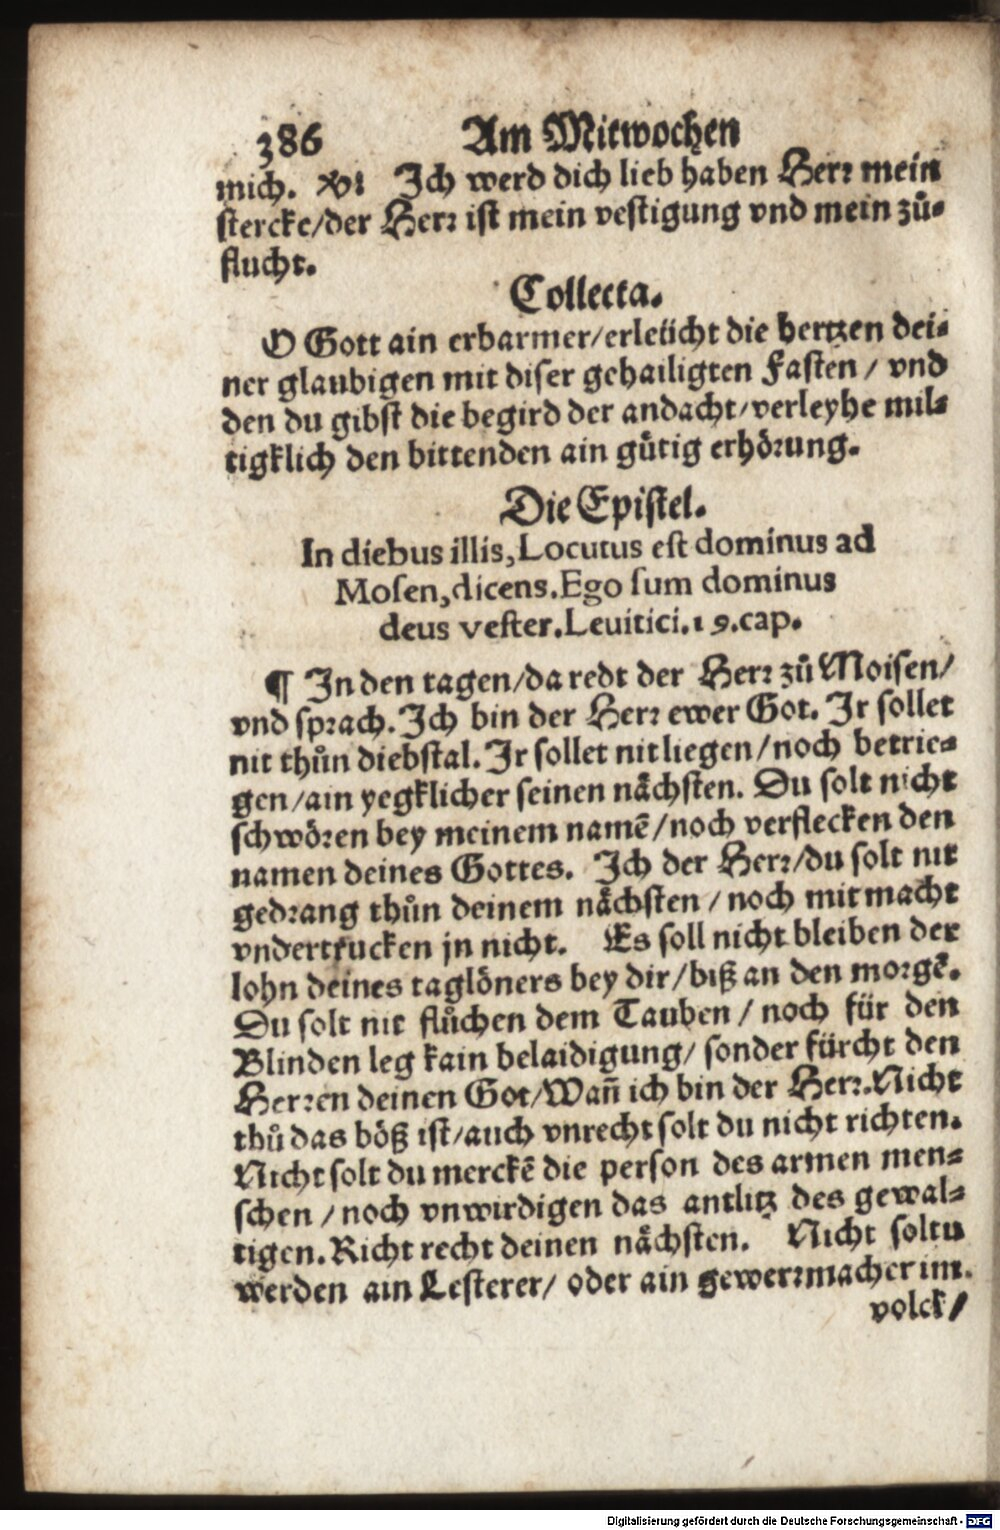 386 Am Mitwochen
mich. Ich werd dich lieb haben Herr mein
stercke/der Herr ist mein vestigung vnd mein zů-
flucht.
Collecta.
O Gott ain erbarmer/erleücht die hertzen dei-
ner glaubigen mit diser gehailigten Fasten / vnd
den du gibst die begird der andacht/verleyhe mil-
tigklich den bittenden ain gůtig erhörung.
Die Epistel.
In diebus illis, Locutus est dominus ad
Mosen, dicens. Ego sum dominus
deus vester. Leuitici. 19. cap.
¶ In den tagen/da redt der Herr zů Moisen/
vnd sprach. Ich bin der Herr ewer Got. Ir sollet
nit thůn diebstal. Ir sollet nit liegen/noch betrie-
gen/ain yegklicher seinen nächsten. Du solt nicht
schwören bey meinem namē/noch verflecken den
namen deines Gottes. Ich der Herr/du solt nit
gedrang thůn deinem nächsten / noch mit macht
vndertrucken jn nicht. Es soll nicht bleiben der
lohn deines taglöners bey dir/biß an den morgē.
Du solt nit flůchen dem Tauben / noch für den
Blinden leg kain belaidigung/ sonder fürcht den
Herren deinen Got/Wañ ich bin der Herr. Nicht
thů das böß ist/auch vnrecht solt du nicht richten.
Nicht solt du merckē die person des armen men-
schen / noch vnwirdigen das antlitz des gewal-
tigen. Richt recht deinen nächsten. Nicht soltu
werden ain Lesterer/ oder ain gewerrmacher im
volck/
Digitalisierung gefördert durch die Deutsche Forschungsgemeinschaft - DFG